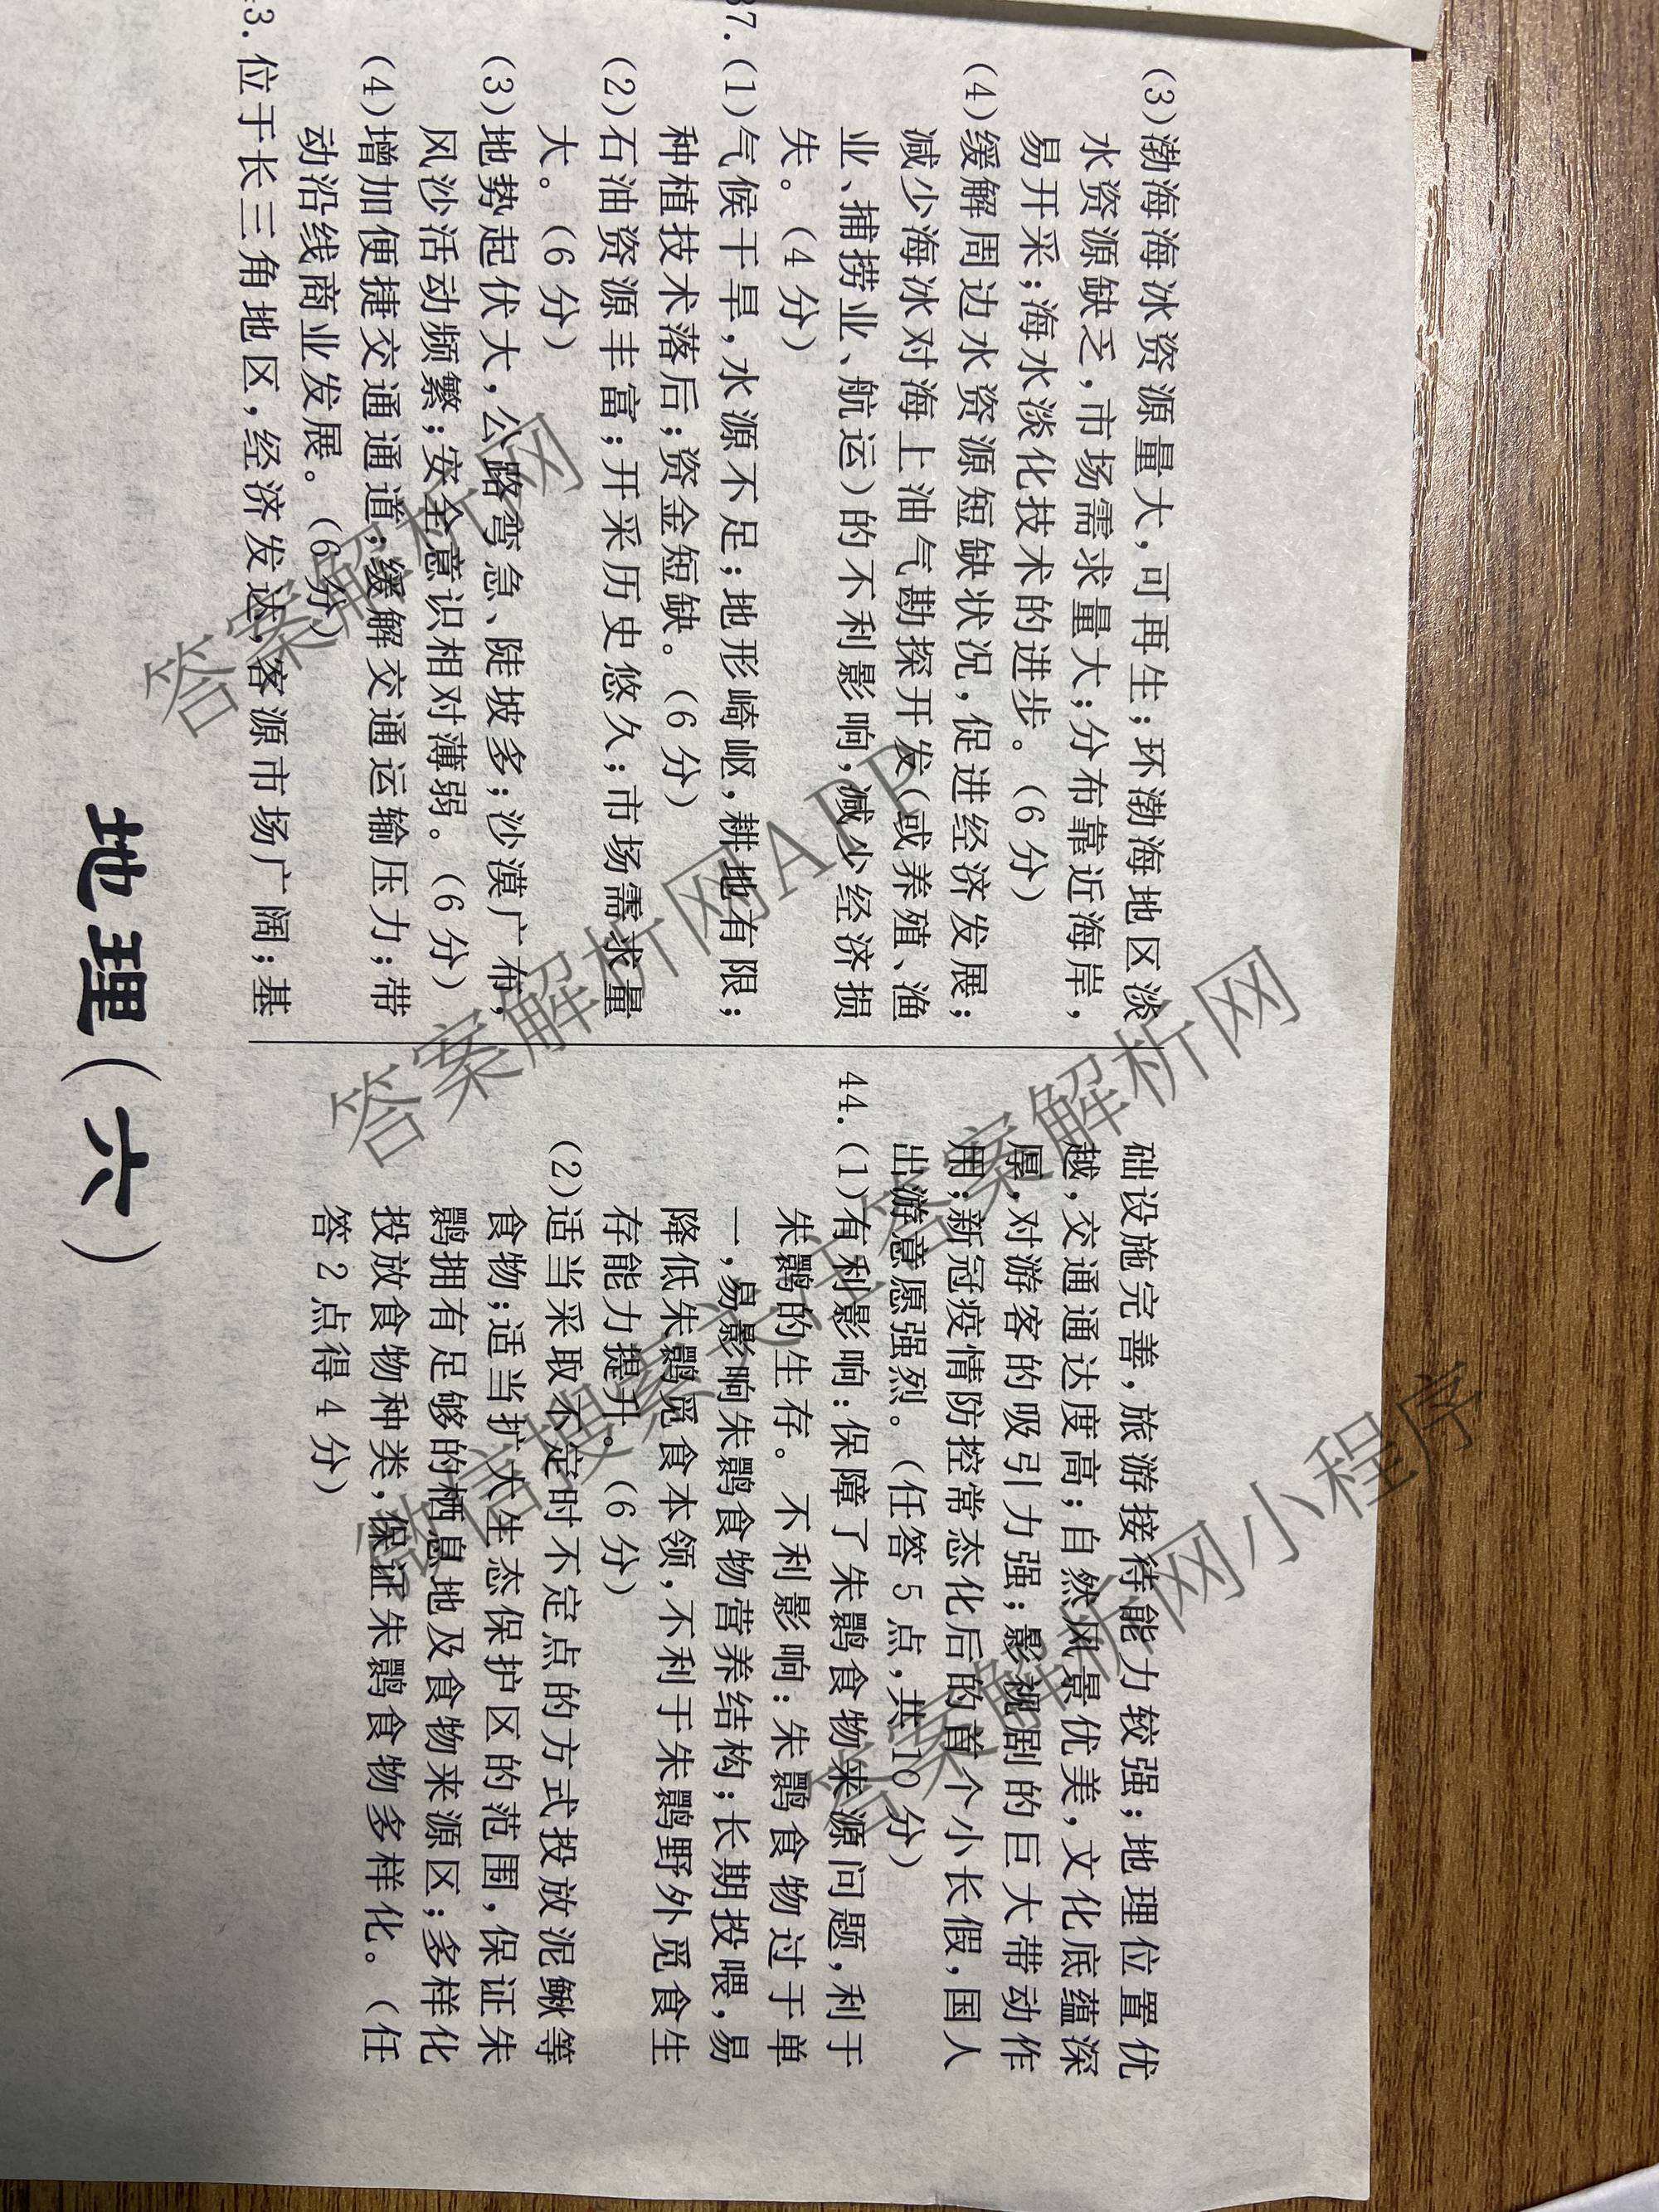 (3)渤海海冰资源量大,可再生;环渤海地区淡
水资源缺乏,市场需求量大;分布靠近海岸,
易开采;海水淡化技术的进步。(6分)
(4)缓解周边水资源短缺状况,促进经济发展;
减少海冰对海上油气勘探开发(或养殖、渔
业、捕捞业、航运)的不利影响,减少经济损
失。(4分)
37.(1)气候干旱,水源不足;地形崎岖,耕地有限;
种植技术落后;资金短缺。(6分)
(2)石油资源丰富;开采历史悠久;市场需求量
大。(6分)
(3)地势起伏大,公路弯急、陡坡多;沙漠广布,
风沙活动频繁;安全意识相对薄弱。(6分)
(4)增加便捷交通通道;缓解交通运输压力;带
动沿线商业发展。(6分)
3.位于长三角地区,经济发达,客源市场广阔;基
础设施完善,旅游接待能力较强;地理位置优
越,交通通达度高;自然风景优美,文化底蕴深
厚,对游客的吸引力强;影视剧的巨大带动作
用;新冠疫情防控常态化后的首个小长假,国人
出游意愿强烈。(任答5点,共10分)
44.(1)有利影响:保障了朱鹮食物来源问题,利于
朱鹮的生存。不利影响:朱鹮食物过于单
一,易影响朱鹮食物营养结构;长期投喂,易
降低朱鹮觅食本领,不利于朱鹮野外觅食生
存能力提升。(6分)
(2)适当采取不定时不定点的方式投放泥鳅等
食物;适当扩大生态保护区的范围,保证朱
鹮拥有足够的栖息地及食物来源区;多样化
投放食物种类,保证朱鹮食物多样化。(任
答2点得4分)
地理(六)
答案解析网
答案解析网APP
微信搜索关注答案解析网
答案解析网小程序